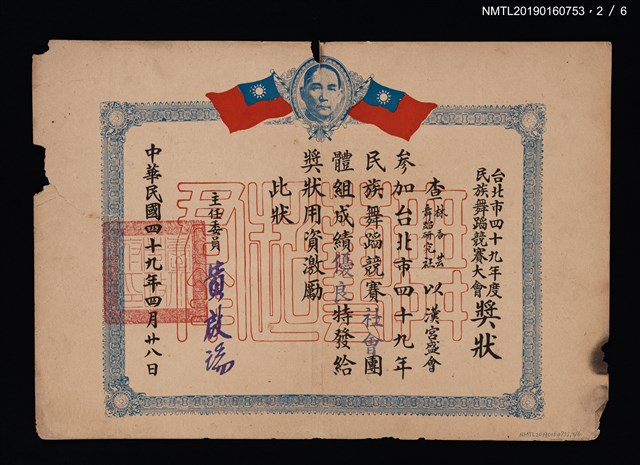 NMTL20190160753，2／6
台北市四十九年度
民族舞蹈競賽大會
獎狀
查
林香芸
舞蹈研究社
以漢宮盛會
參加台北市四十九年
民族舞蹈競賽社會團
體組成績優良特發給
獎狀用資激勵
此狀
主任委員
黃啟瑞
中華民國四十九年四月廿八日